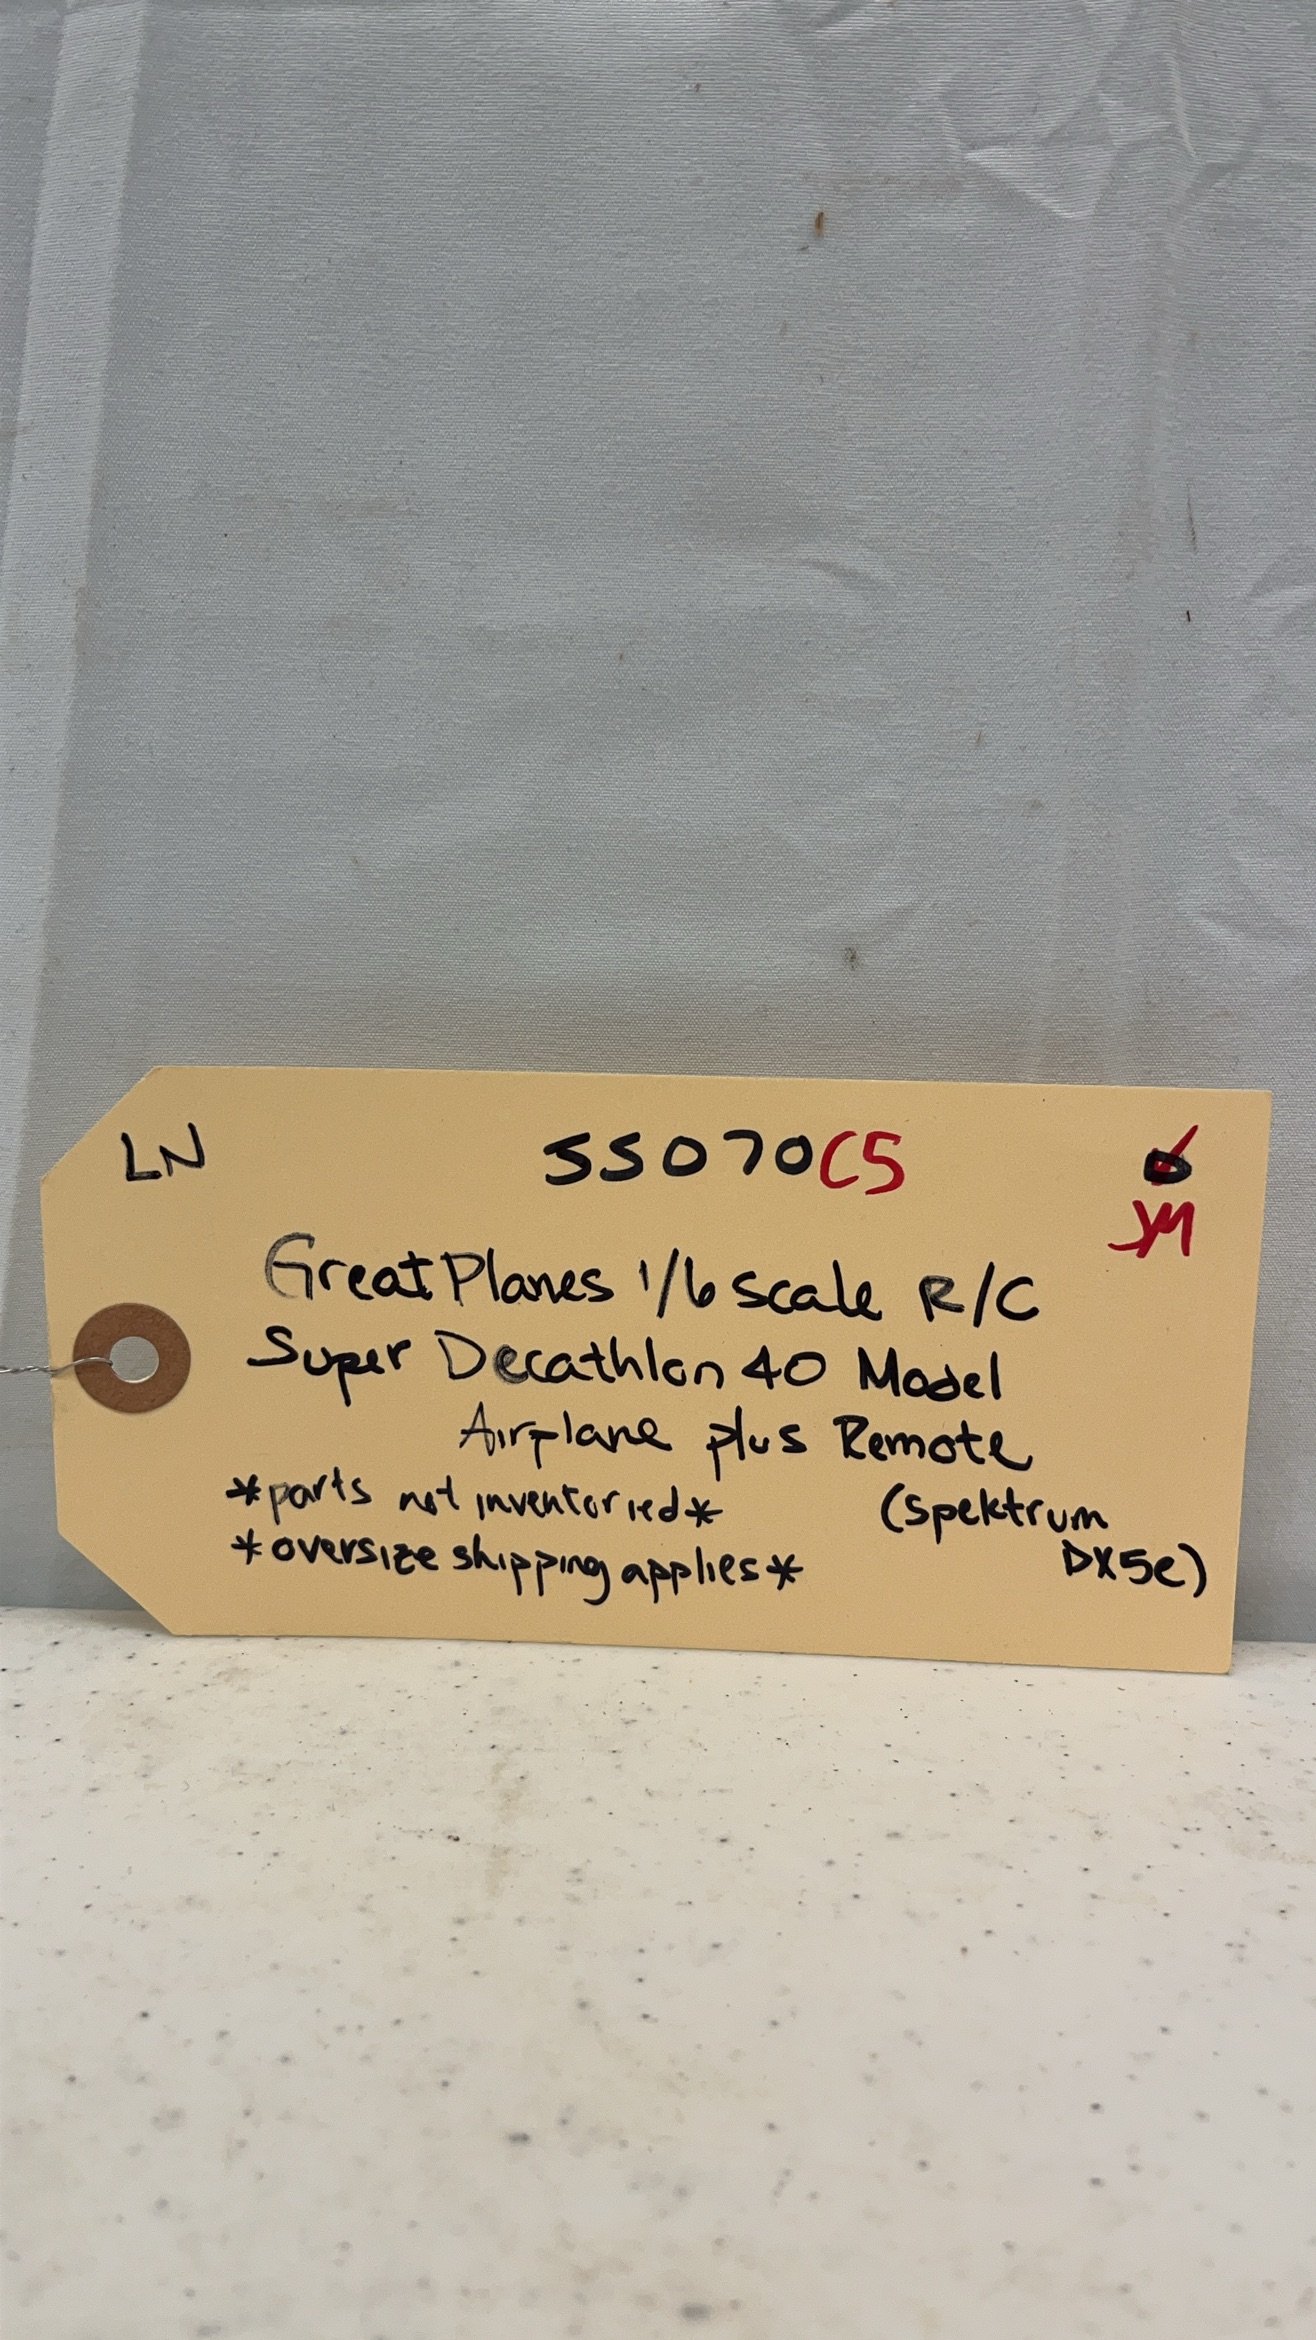 LN
SS070C5
JM
Great Planes 1/6 scale R/C
Super Decathlon 40 Model
Airplane plus Remote
*parts not inventoried*
(Spektrum
*oversize shipping applies*
DX5e)